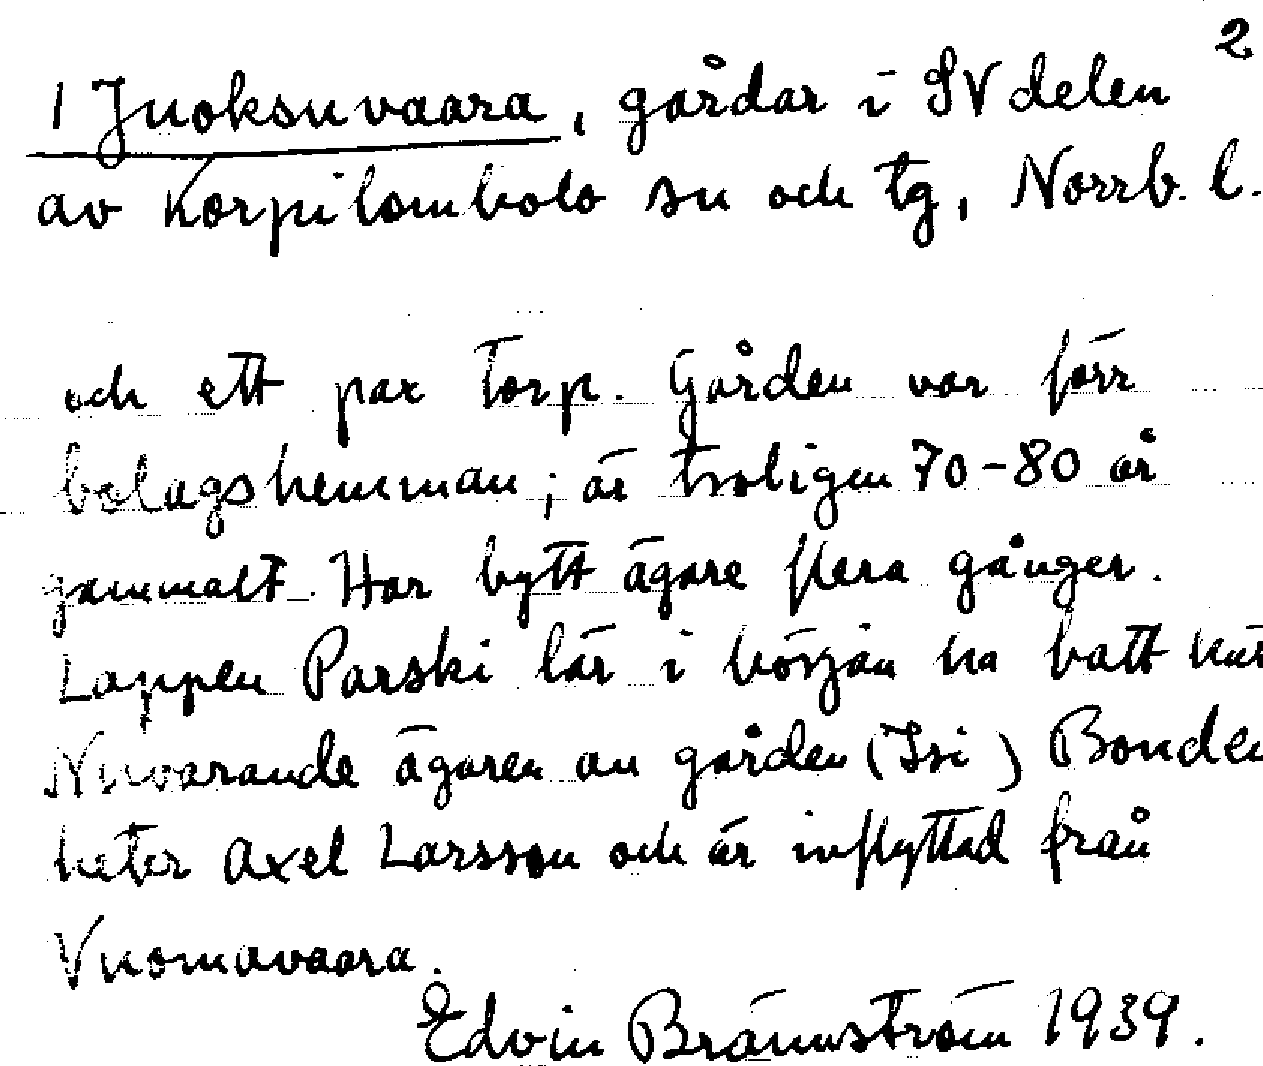 2
1 Juoksuvaara, gårdar i SV delen
av Korpilombolo sn och tg, Norrb. l.
och ett par torp. Gården var förr
bolagshemman; är troligen 70-80 år
gammalt. Har bytt ägare flera gånger.
Lappen Parski lär i början ha bott här
Nuvarande ägaren av gården (Isi) Bonden
heter Axel Larsson och är inflyttad från
Vuomavaara.
Edvin Brännström 1939.